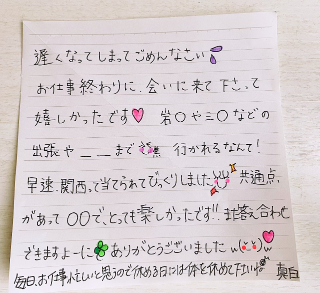 遅くなってしまってごめんなさい
お仕事終わりに会いに来て下さって
嬉しかったです 岩〇や三〇などの
出張や__まで 行かれるなんて!
早速、関西って当てられてびっくりしました 共通点
があって〇〇で、とっても楽しかったです!! また答え合わせ
できますよーに ありがとうございました
毎日、お仕事が忙しいと思うので休める日には体を休めて下さいね 真白